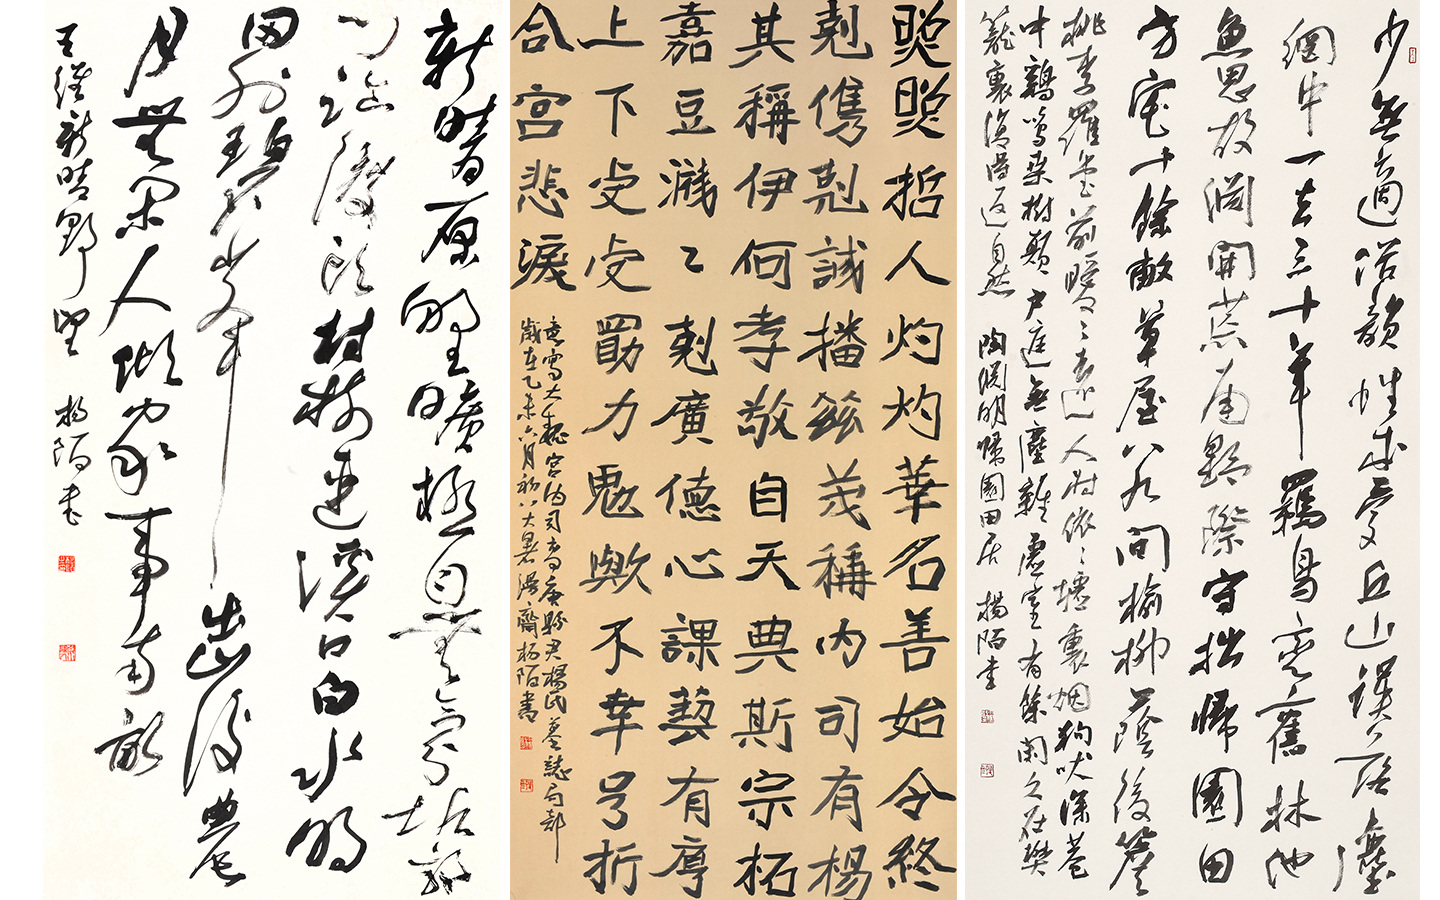 新晴原野曠極目無氛垢郭
門臨渡頭村樹連溪口白水明
田外碧峯出山後農
月無閑人傾家事南畝
王維新晴野望 楊陌書
煚煚哲人灼灼華名善始令終
剋儁剋誠播茲茂稱內司有楊
其稱伊何孝敬自天典斯宗祏
嘉豆濺々剋廣德心課藝有
上下虔虔勖力歟不幸号折
合宮悲淚
意寫大魏宮內司高唐縣君楊氏墓誌句部
歲在乙未六月初八大暑齋楊陌書
少無適俗韻性本愛丘山誤落塵
網中一去三十年羈鳥戀舊林池
魚思故淵開荒南野際守拙歸園田
方宅十餘畝草屋八九間榆柳蔭後簷
桃李羅堂前曖々遠人村依々墟裏烟狗吠深巷
中鷄鳴桑樹顛戶庭無塵雜虛室有餘閑久在樊
籠裏復得返自然 陶淵明歸園田居 楊陌書